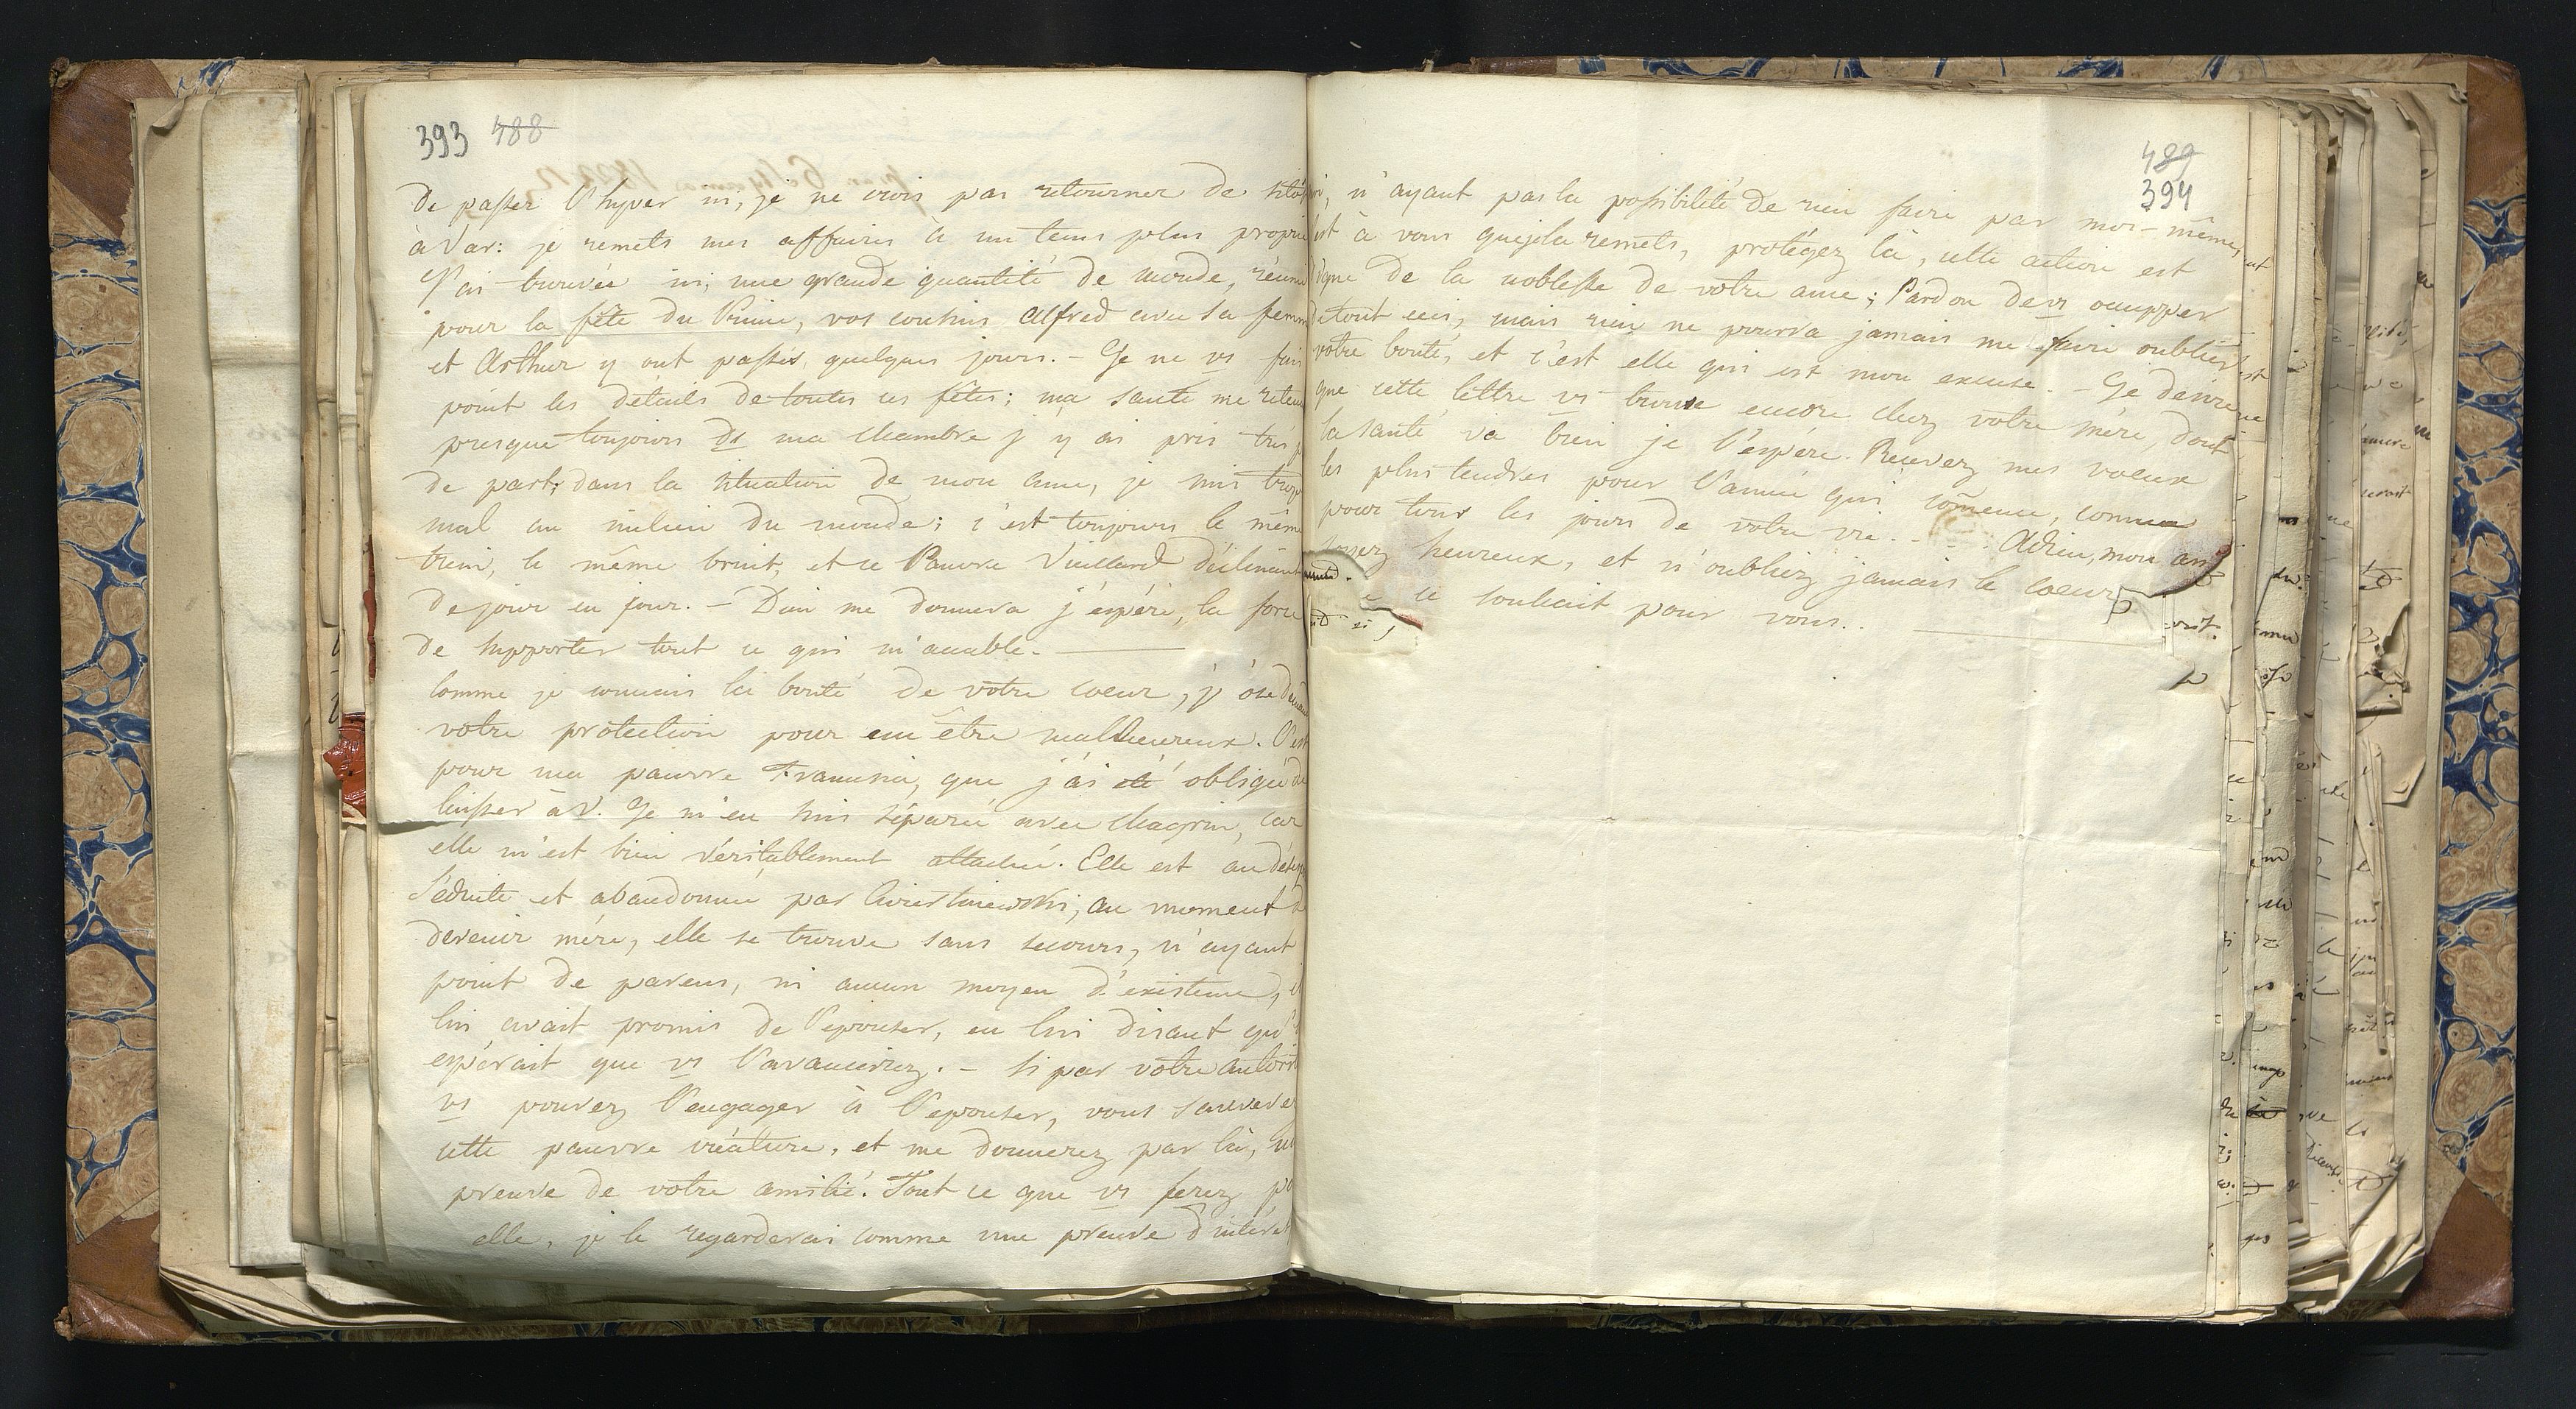 393 488
de passer l'hyver ici, je ne crois pas retourner de sitôt
à Var: je remets mes affaires à un tems plus propice
J'ai trouvée ici, une grande quantité de monde, réunie
pour la fête du Prince, vos cousins Alfred avec sa femme
et Arthur y ont passés quelques jours. - Je ne vs fais
point les détails de toutes ces fêtes; ma santé me retenant
presque toujours ds ma chambre j'y ai pris très p
de part; dans la situation de mon ame, je suis trop
mal au milieu du monde; c'est toujours le même
train, le même bruit, et ce Pauvre Vieillard déclinant
de jour en jour. - Dieu me donnera j'éspére, la force
de supporter tout ce qui m'accable. -
Comme je connais la bonté de votre coeur, j'ôse deman
votre protection pour un être malheureux. C'est
pour ma pauvre Franusia, que j'ai été obligée de
laisser à V. Je m'en suis séparée avec chagrin, car
elle m'est bien véritablement attachée. Elle est au déses
Séduite et abandonnée par, au moment d
devenir mére, elle se trouve sans secours, n'ayant
point de parens, ni aucun moyen d'existence, il
lui avait promis de l'epouser, en lui disant qu'
espérait que vs l'avanceriez. - Si par votre autorit
vs pouvez l'engager à l'epouser, vous sauverez
cette pauvre créature, et me donnerez par là, un
preuve de votre amitié. Tout ce que vs ferez po
elle, je le regarderai comme une preuve d'intérêt
489
394
n'ayant pas la possibilité de rien faire par moi-même,
est à vous que je la remets, protégez là, cette action est
digne de la noblesse de votre ame; Pardon de vs occupper
de tout ceci, mais rien ne pourra jamais me faire oublier
votre bonté, et c'est elle qui est mon excuse. - Je désire
que cette lettre vs trouve encore chez votre mère, dont
la santé va bien je l'espére. Recevez mes voeux
les plus tendres pour l'année qui com̃ence, comme
pour tous les jours de votre vie. - - . Adieu, mon ami
soyez heureux, et n'oubliez jamais le coeur
ce souhait pour vous..